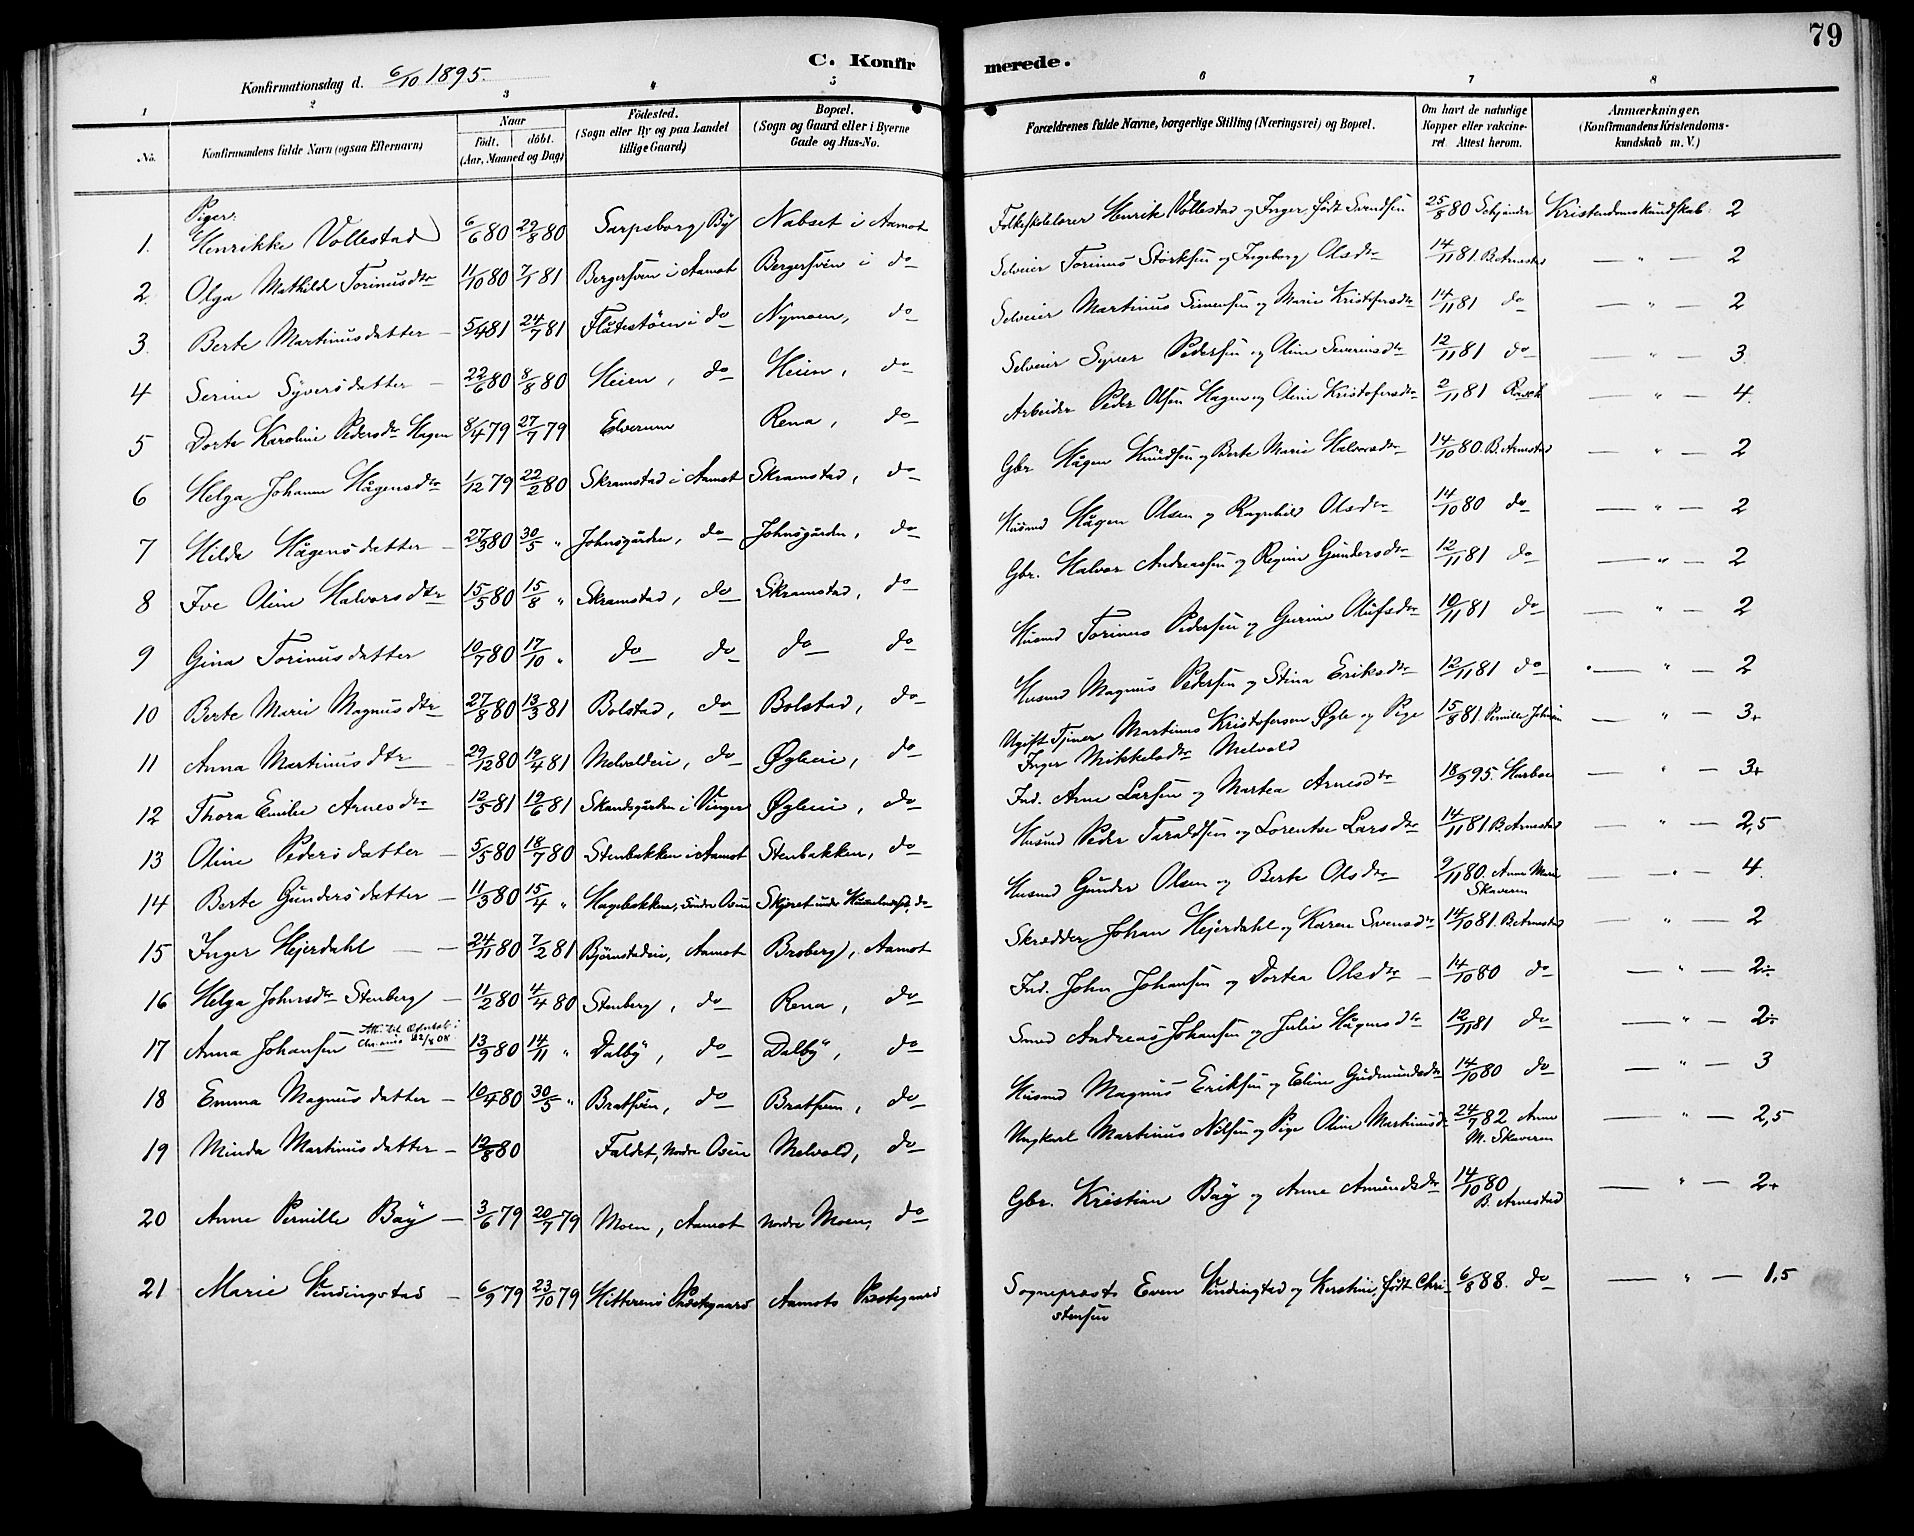 79
C. Konfirmerede.
Konfirmationsdag d. 6/10 1895.
1 2 3 4 5 6 7 8
No. Konfirmandens fulde Navn (ogsaa Efternavn) Naar født. døbt. (Aar, Maaned og Dag) Fødested. (Sogn eller By og paa Landet tillige Gaard) Bopæl. (Sogn og Gaard eller i Byerne Gade og Hus-No. Forældrenes fulde Navne, borgerlige Stilling (Næringsvei) og Bopæl. Om havt de naturlige Kopper eller vakcineret Attest herom. Anmærkninger. (Konfirmandens Kristendomskundskab m. V.)
Piger.
1. Henrikke Vollestad 6/6 80 29/8 80 Sarpsborg By Nabset i Aamot Folkeskolelærer Henrik Vollestad og Inger født Svendsen 25/8 80 Kristendomskundskab: 2
2. Olga Mathilde Torinusdtr 11/10 80 7/1 81 Bergersveen i Aamot Bergersveen i do Selveier Torinus Størksen og Ingeborg Olsdtr 14/11 81 B. Arnestad — " — 2
3. Berte Martinusdatter — 5/4 81 24/7 81 Flåtestøen i do Nymoen, do Selveier Martinus Simensen og Marie Kristofersdtr 14/11 81 do — " — 2
4 Serine Syversdatter — 22/6 80 8/8 80 Heien, do Heien, do Selveier Syver Pedersen og Oline Severinsdtr 12/11 81 do — " — 3
5 Dorte Karoline Pedersdtr Hagen 8/4 79 27/7 79 Elverum Rena, do Arbeider Peder Olsen Hagen og Oline Kristofersdtr 2/11 81 — " — 4
6 Helga Johanne Hågensdtr 1/12 79 22/2 80 Skramstad i Aamot Skramstad, do Gbr Hågen Knudsen og Berte Marie Halvorsdtr 14/10 80. B. Arnestad — " — 2
7 Hilda Hågensdatter — 27/3 80 30/5 " Johnsgården, do Johnsgården, do Husmd Hågen Olsen og Ragnhild Olsdtr 14/10 80 do — " — 2
8 Ive Oline Halvorsdtr 15/5 80 15/8 " Skramstad, do Skramstad, do Gbr. Halvor Andreassen og Regine Gundersdtr 12/11 81 do — " — 2
9 Gina Torinusdatter 10/7 80 17/10 " do do do do Husmd Torinus Pedersen og Gurine Olufsdtr 10/11 81 do — " — 2
10 Berte Marie Magnusdtr 27/8 80 13/3 81 Bolstad, do Bolstad, do Husmd Magnus Pedersen og Stina Eriksdtr 12/11 81 do — " — 2
11 Anna Martinusdtr 29/12 80 19/4 81 Melvoldeie, do Øgleie, do Ugift Tjener Martinus Kristofersen Øgle og Pige 15/8 81 Pernille — " — 3+
Inger Mikkelsdtr Melvold
12 Thora Emilie Arnesdtr 12/5 81 19/6 81 Skandsgården i Vinger Øgleie, do Ind. Arne Larsen og Martea Arnesdtr 18/9 95 Harboe — " — 3+
13 Oline Pedersdatter — 5/5 80 18/7 80 Stenbakken i Aamot Stenbakken, do Husmd Peder Taraldsen og Lorentse Larsdtr 14/11 81 B. Arnestad — " — 2,5
14 Berte Gundersdatter — 11/3 80 15/4 " Hagebakken, søndre Osen Skjæret under, do Husmd Gunder Olsen og Berte Olsdtr 2/11 80. Anne Marie Skaveren — " — 4.
15 Inger Hejerdahl — 24/11 80 7/2 81 Bjørnstadeie, Aamot Broberg, Aamot Skrædder Johan Hejerdahl og Karen Svensdtr 14/10 81 B. Arnestad — " — 2
16 Helga Johnsdtr Stenberg — 11/2 80 4/4 80 Stenberg, do Rena, do Ind. John Johansen og Dortea Olsdtr 14/10 80 do — " — 2÷
17 Anna Johansen Att. til i Chr.ania 22/8 08 13/9 80 14/11 " Dalby, do Dalby, do Smed Andreas Johansen og Julie Hågensdtr 12/11 81 do — " — 2÷
18 Emma Magnusdatter — 10/4 80 30/5 " Bratsveen, do Bratsveen, do Husmd Magnus Eriksen og Eline Gudmundsdtr 14/10 80 do — " — 3
19 Minda Martinusdatter — 12/8 80 Faldet, Nordre Osen Melvold, do Ungkarl Martinus Nilsen og Pige Oline Martinusdtr 24/7 82 Anne M. Skaveren — " — 2,5
20 Anne Pernille Bay — 3/6 79 20/7 79 Moen, Aamot Nordre Moen, do Gbr. Kristian Bay og Anne Amundsdtr 14/10 80 B. Arnestad — " — 2+
21 Marie Vendingstad — 6/9 79 23/10 79 Hitterens Præstegaard Aamots Præstegaard Sognepræst Even Vendingstad og Kirstine, født Chri- 6/8 88. do — " — 1,5
stensen